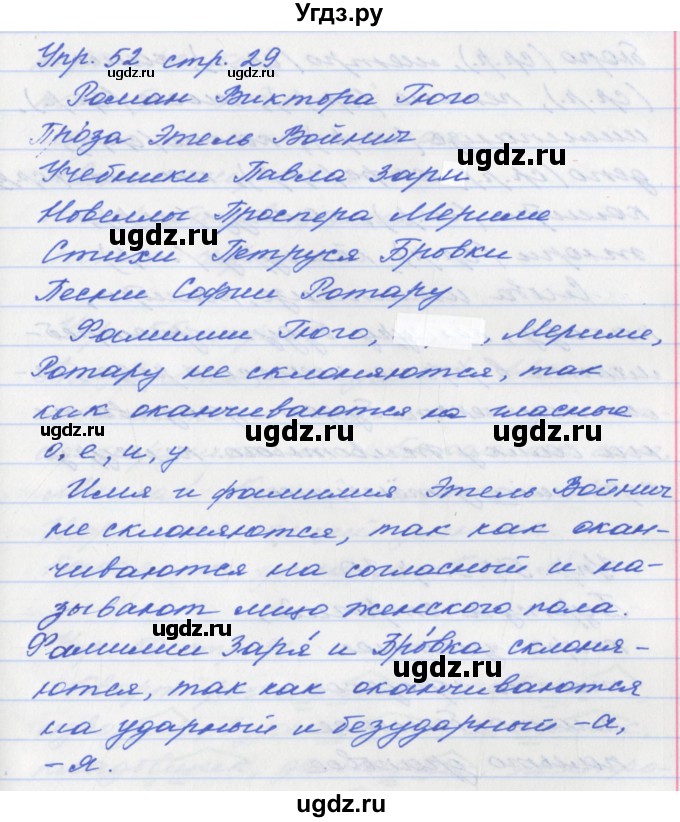 Угдз.ру
Упр. 52 стр. 29
Роман Виктора Гюго
Про́за Этель Войнич
Учебники Павла Зари
Новеллы Проспера Мериме
Стихи Петруся Бровки
Песни Софии Ротару
Фамилии Гюго, , Мериме,
Ротару не склоняются, так
как оканчиваются на гласные
о, е, и, у
Имя и фамилия Этель Войнич
не склоняются, так как окан-
чиваются на согласный и на-
зывают лицо женского пола.
Фамилии Заря́ и Бро́вка склоня-
ются, так как оканчиваются
на ударный и безударный -а,
-я.
ugdz.ru
ugdz.ru
ugdz.ru
ugdz.ru
ugdz.ru
ugdz.ru
ugdz.ru
ugdz.ru
ugdz.ru
ugdz.ru
ugdz.ru